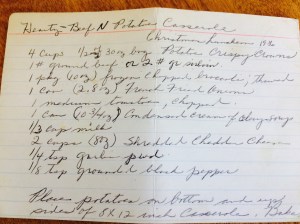 Hearty - Beef N Potatoes Casserole
Christmas Luncheon 1980
4 cups 1/2 of 30 oz bag Potato Crispy Crowns
1 # ground beef or 2 # gr sirloin
1 pkg (10oz) frozen chopped broccoli, thawed
1 can (2.8oz) French Fried Onions
1 medium tomato, chopped
1 can (10 3/4 oz) Condensed cream of
1/3 cup milk
2 cups (8oz) Shredded Cheddar Cheese
1/4 tsp garlic pwd.
1/8 tsp ground black pepper
Place potatoes on bottom and up
sides of 8x12 inch Casserole. Bake